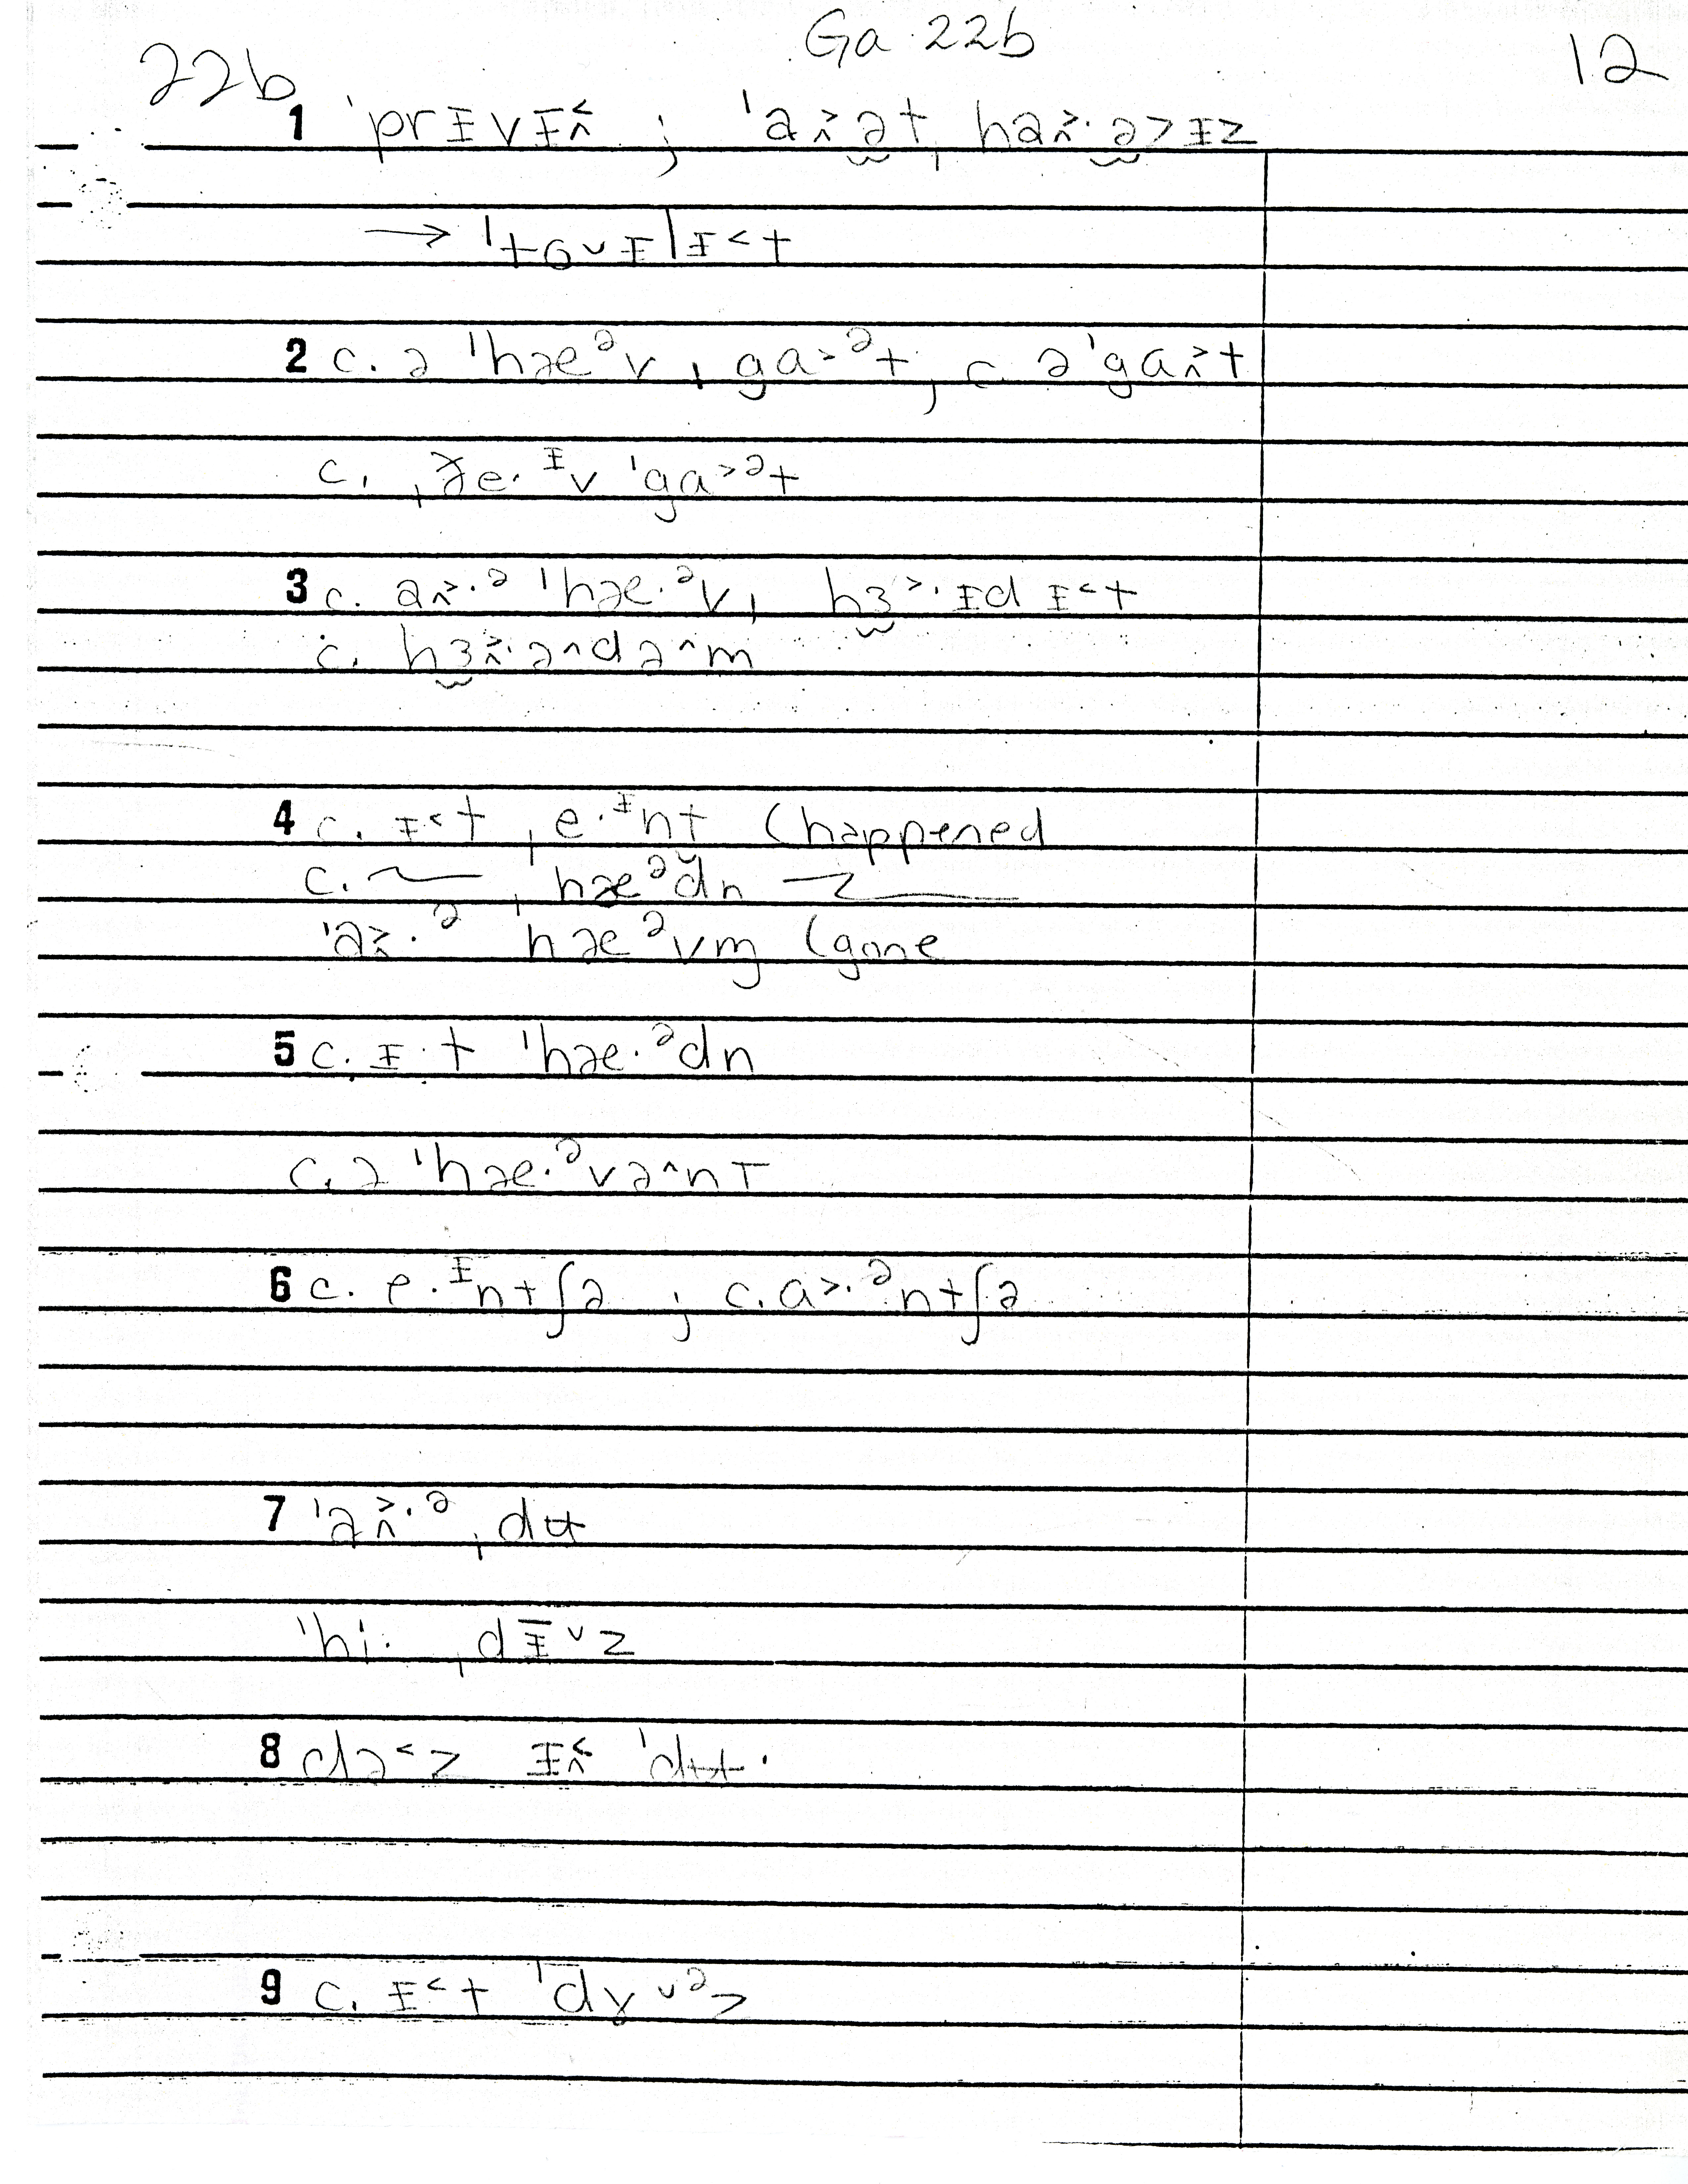 Ga 22b
22b 12
1 ˈprɪvɪ˂˄ ; ˈa˃˄ə̯t, ha˃˄·ə̯˃ɪz
→ ˈtɵ˅ɪlɪ˂t
2 c. ə ˈhæᵊv ˌga˃ᵊt ; c. ə ˈga˃˄t
c. ˌðe·ᶦv ˈga˃ᵊt
3 c. a˃˄·ᵊ ˈhæ·ᵊv, hɜ̯˃·ɪd ɪ˂t
c. hɜ̯˃˄·ə˄də˄m
4 c. ɪ˂t ˌe·ᶦnt (happened
c. ~ ˌhæᵊd̬n ~
ˈa˃˄·ᵊ ˌhæᵊvm̩ (gone
5 c. ɪ·t ˈhæ·ᵊdn
c. ə ˈhæ·ᵊvə˄nT
6 c. e·ᶦntʃə ; c. a˃·ᵊntʃə
7 ˈa˃˄·ᵊ ˌdʉ
ˈhi· ˌdɪ˅z
8 də˂z ɪ˂˄ ˈdʉ·
9 c. ɪ˂t ˈdɣ˅ᵊz